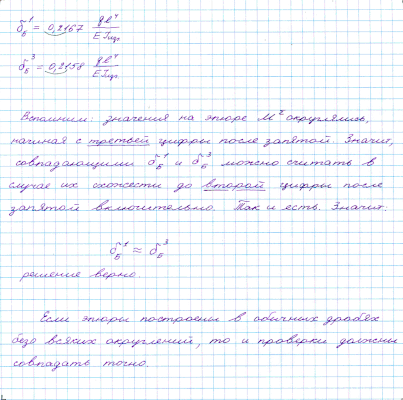 δ_Б^1 = 0,2167 ql⁴/EI_цз
δ_Б^3 = 0,2158 ql⁴/EI_цз
Вспомним: значения на эпюре M^z округлялись,
начиная с третьей цифры после запятой. Значит,
совпадающими δ_Б^1 и δ_Б^3 можно считать в
случае их схожести до второй цифры после
запятой включительно. Так и есть. Значит:
δ_Б^1 ≈ δ_Б^3
решение верно.
Если эпюры построены в обычных дробях
безо всяких округлений, то и проверки должны
совпадать точно.